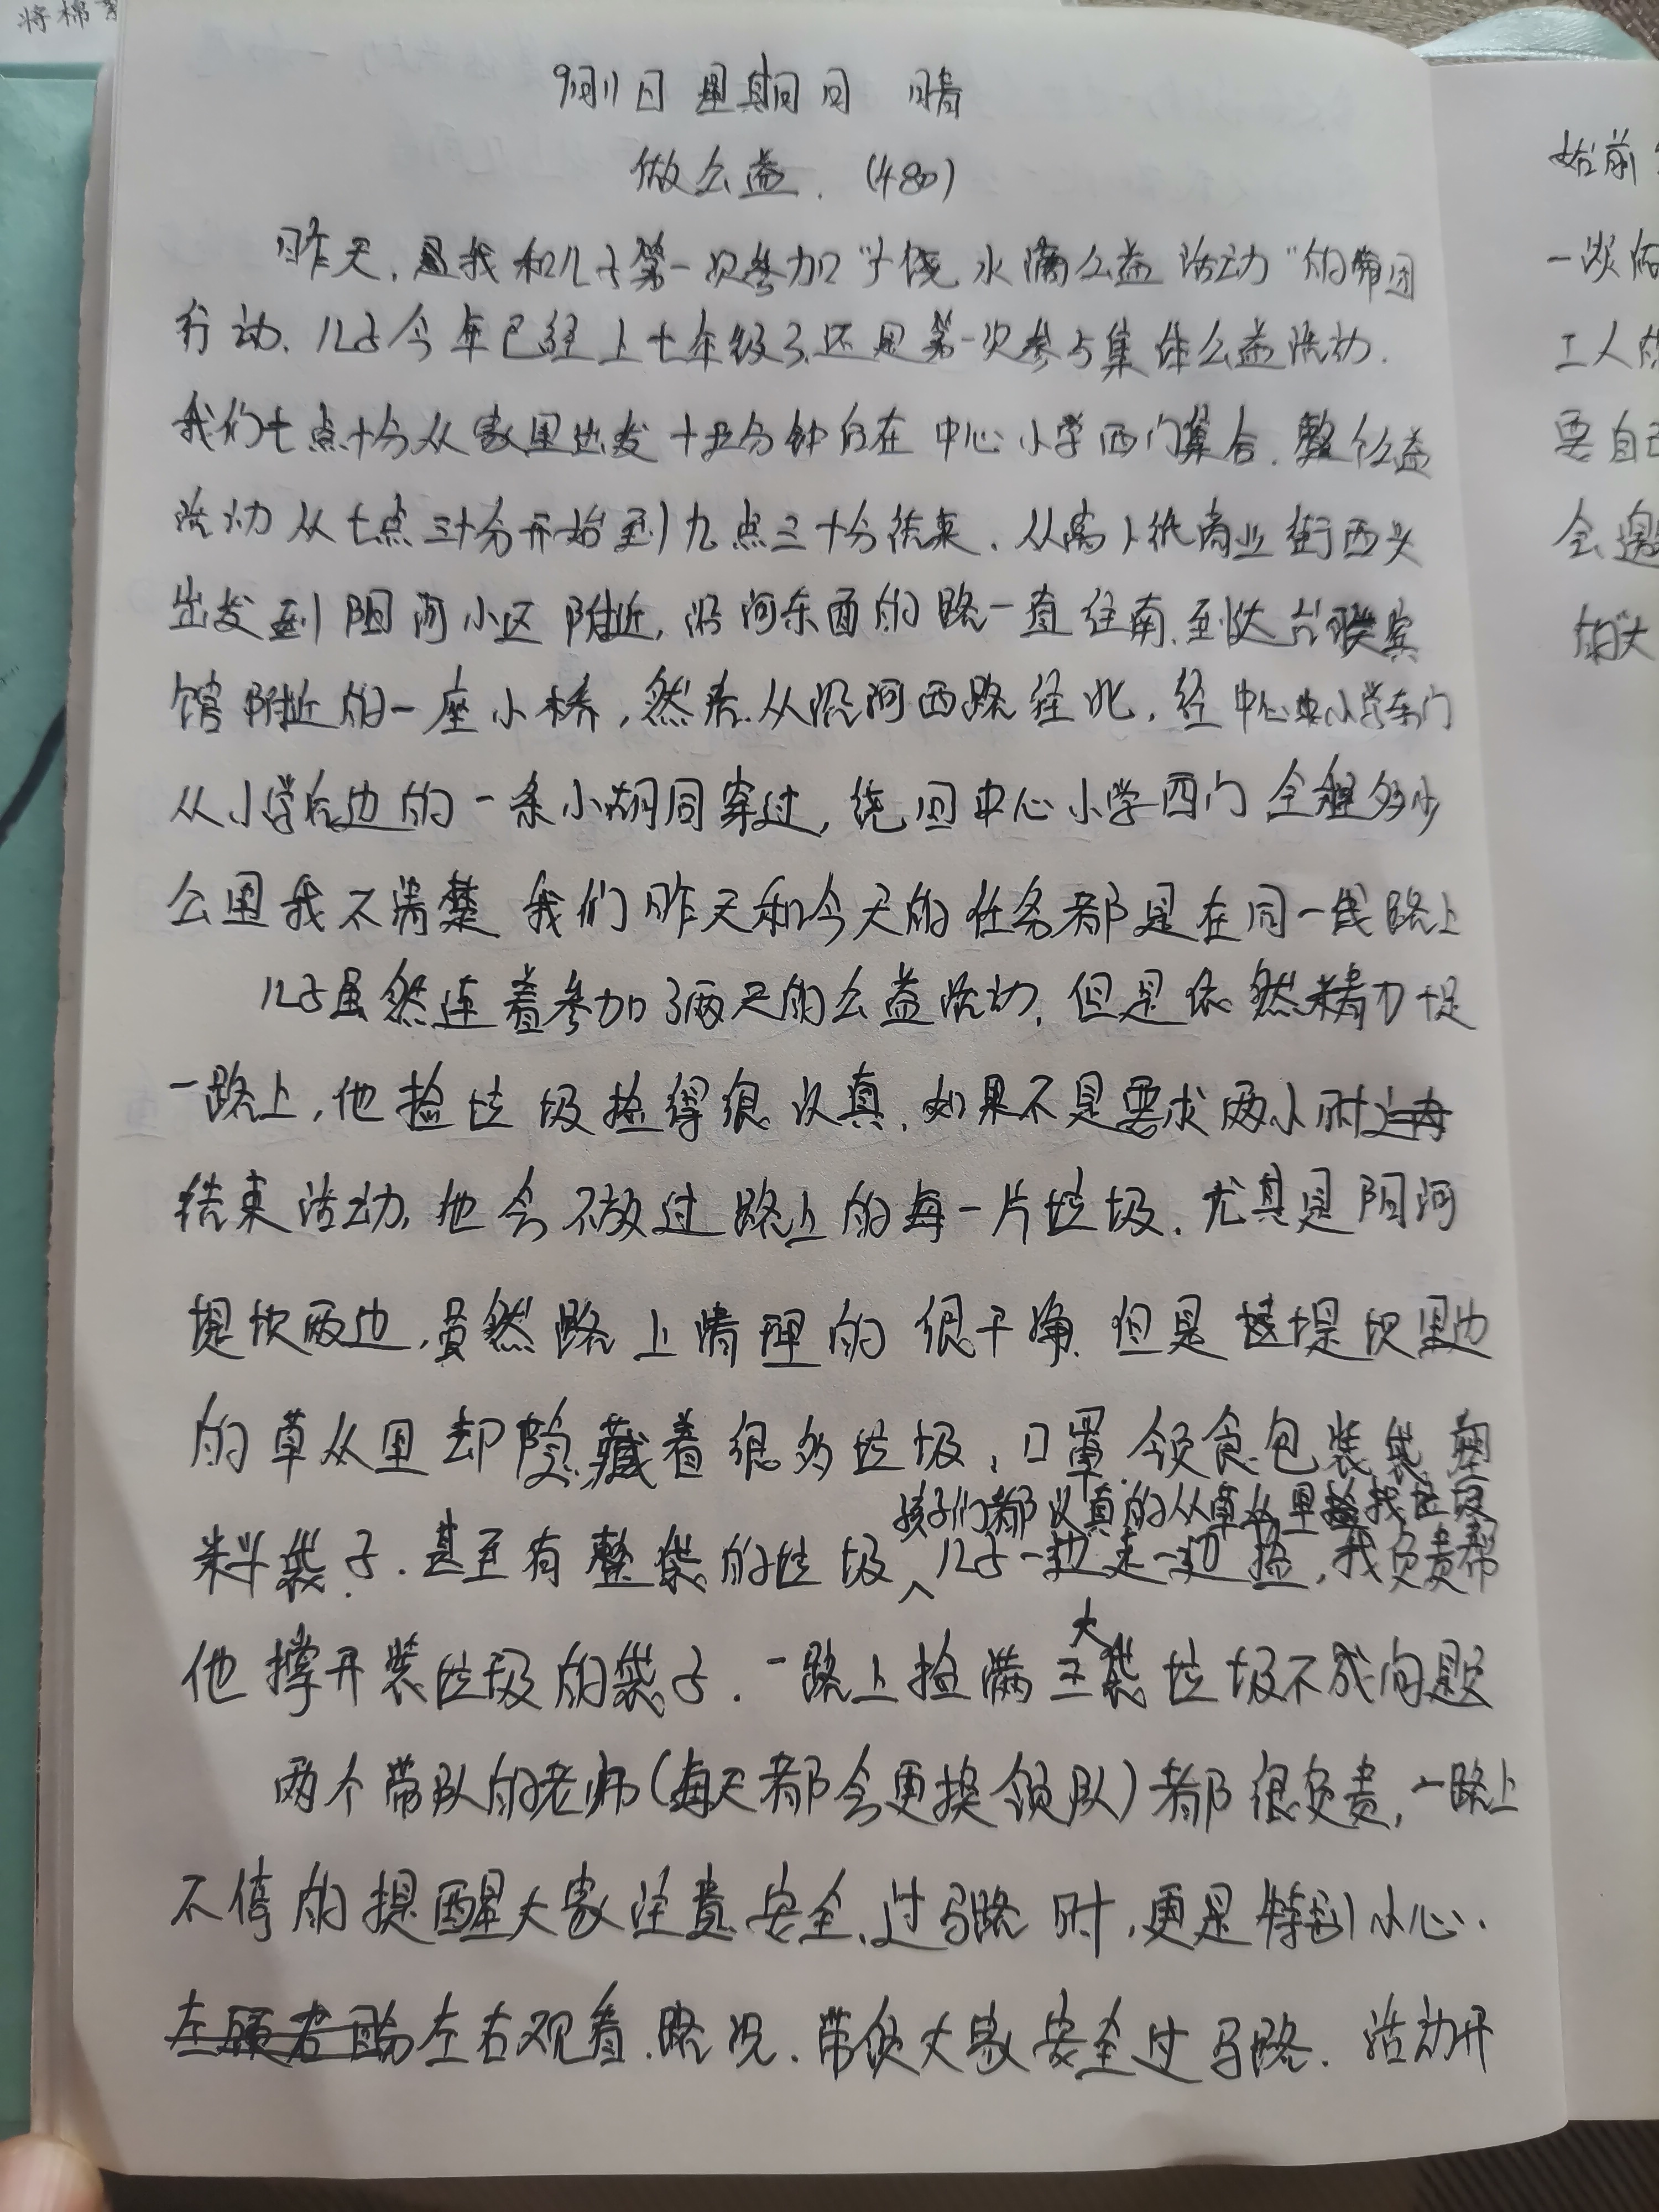 将棉
9月11日 星期日 晴
做公益.(480)
昨天,是我和儿子第一次参加"水滴公益活动"的带团
行动.儿子今年已经上七年级了,还是第一次参与集体公益活动.
我们七点十分从家里出发十五分钟后在中心小学西门集合.整个公益
活动从七点三十分开始到九点三十分结束.从商业街西头
出发到阳河小区附近,沿河东面的路一直往南.到达宾
馆附近的一座小桥,然后从沿河西路往北,经中心小学东门
从小学后边的一条小胡同穿过,绕回中心小学西门全程多少
公里我不清楚我们昨天和今天的任务都是在同一线路上
儿子虽然连着参加了两天的公益活动,但是依然精力十足
一路上,他捡垃圾捡得很认真.如果不是要求两小时
结束活动,他会不放过路上的每一片垃圾.尤其是阳河
堤坝两边,虽然路上清理的很干净.但是堤坝里边
的草丛里却隐藏着很多垃圾,口罩.领食包装袋.塑
孩子们都认真的从草丛里找垃圾
料袋子.甚至有整袋的垃圾儿子一边走一边捡,我负责帮
他撑开装垃圾的袋子.一路上捡满三大袋垃圾不成问题
两个带队的老师(每天都会更换领队)都很负责,一路上
不停的提醒大家注意安全,过马路时,更是特别小心.
左右观看.路况.带领大家安全过马路.活动开
始前
一次
工人
要自己
会邀
的"大